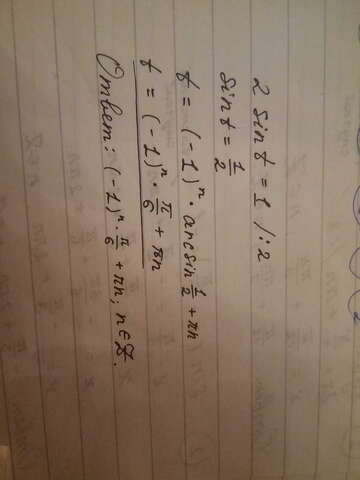 2 sin t = 1 /:2
sin t = 1/2
t = (-1)ⁿ · arcsin 1/2 + πn
t = (-1)ⁿ · π/6 + πn
Ответ: (-1)ⁿ · π/6 + πn, n ∈ Z.